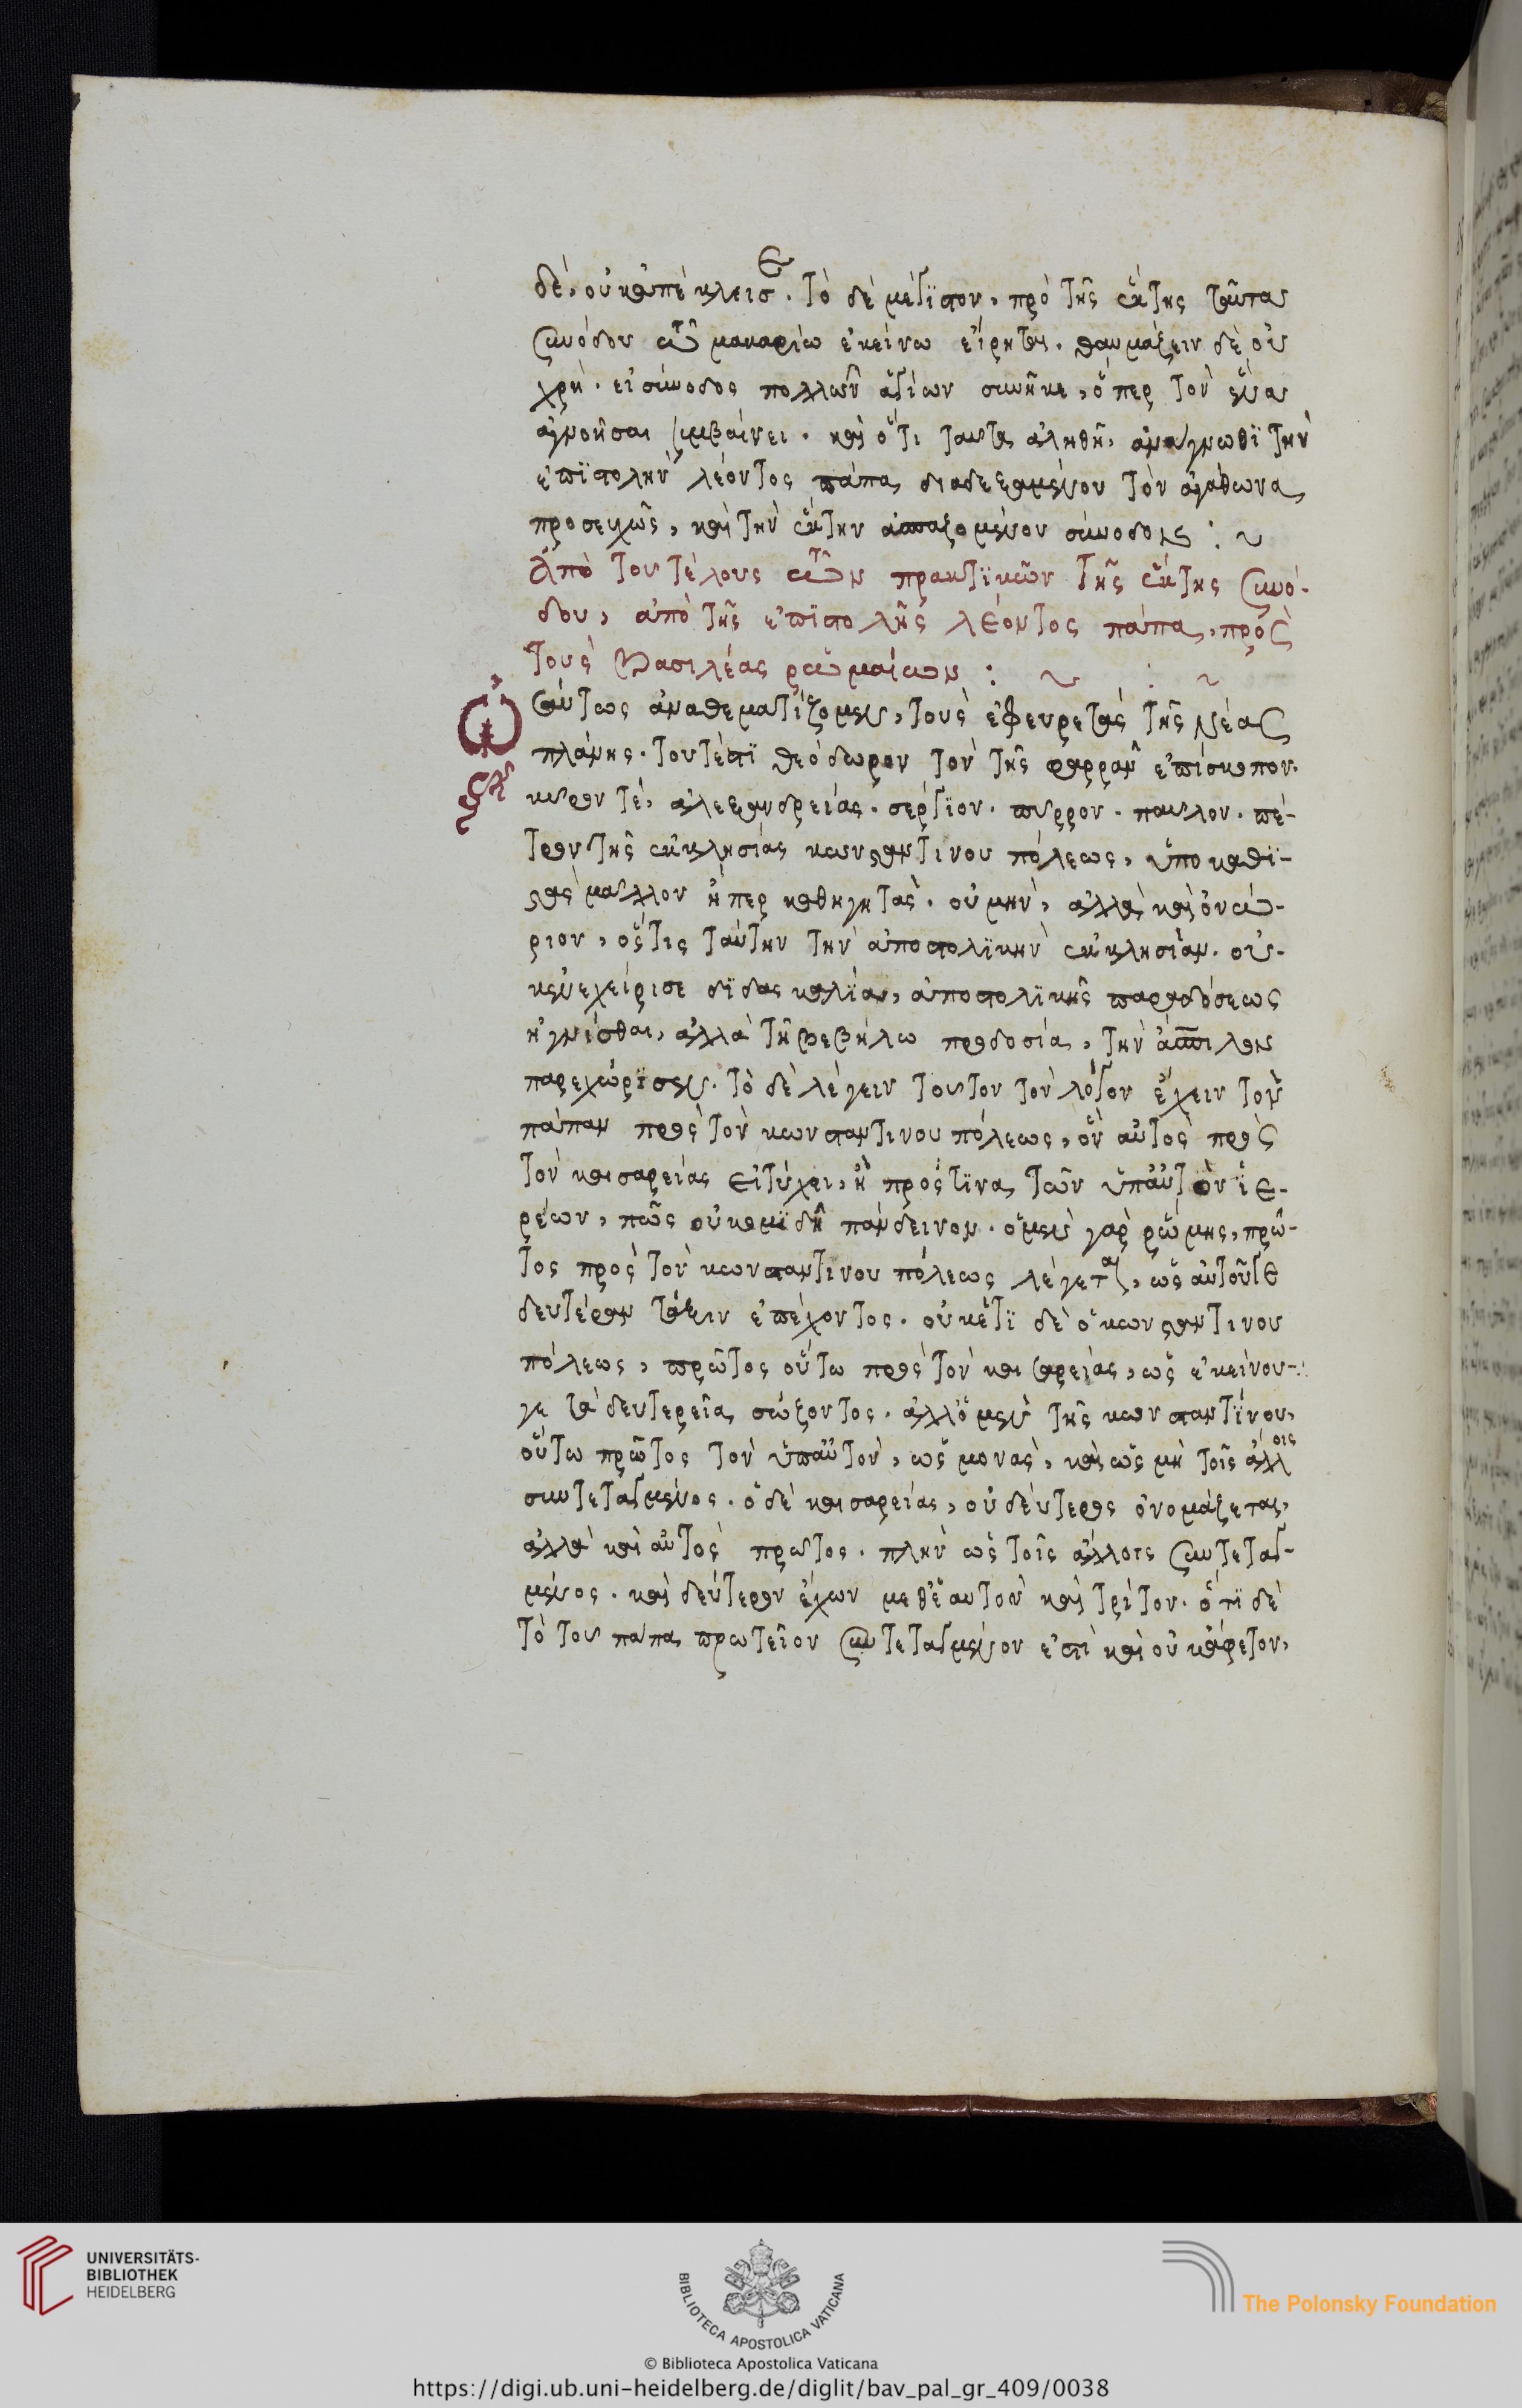 δὲ, οὐκ ἀπέκλεισε. τὸ δὲ μέγιστον, πρὸ τῆς ἕκτης ταῦτα
συνόδου τῶ μακαρίω ἐκείνω εἴρηται. θαυμάζειν δὲ οὐ
χρή. εἰ σύνοδος πολλῶν ἁγίων συνῆκε, ὅπερ τὸν ἕνα
ἀγνοῆσαι συμβαίνει. καὶ ὅτι ταῦτα ἀληθῆ, ἀνάγνωθι τὴν
ἐπιστολὴν λέοντος πάπα, διαδεξαμένου τὸν ἀγάθωνα,
προσεχῶς, καὶ τὴν ἕκτην ἀσπαζομένου σύνοδον : ~
Ἀπὸ τοῦ τέλους τῶν πρακτικῶν τῆς ἕκτης συνό-
δου, ἀπὸ τῆς ἐπιστολῆς λέοντος πάπα, πρὸς
τοὺς βασιλέας ῥωμαίων : ~ : ~
Ὡσαύτως ἀναθεματίζομεν, τοὺς ἐφευρετὰς τῆς νέας
πλάνης. τουτέστι θεόδωρον τὸν τῆς φαρρὰν ἐπίσκοπον.
κῦρον τὲ, ἀλεξανδρείας. σέργιον. πύρρον. παῦλον. πέ-
τρον τῆς ἐκκλησίας κωνσταντινου πόλεως, ὑποκαθι-
στὰς μᾶλλον ἤπερ καθηγητάς. οὐ μὴν, ἀλλὰ καὶ ὀνώ-
ριον, ὅστις ταύτην τὴν ἀποστολικὴν ἐκκλησίαν. οὐ-
κ ἐνεχείρισε διδασκαλία, ἀποστολικῆς παραδόσεως
ἡγνίσθαι, ἀλλὰ τῆ βεβήλω προδοσία, τὴν ἄσπιλον
παρεχώρισεν. τὸ δὲ λέγειν τοῦτον τὸν λόγον ἔχειν τὸν
πάπαν πρὸς τὸν κωνσταντινου πόλεως, ὃν αὐτὸς πρὸς
τὸν καισαρείας εἰ τύχει, ἢ πρός τινα, τῶν ὑπ αὐτὸν ἱε-
ρέων, πῶς οὐ κομιδῆ πάνδεινον. ὁ μὲν γὰρ ῥώμης, πρῶ-
τος πρὸς τὸν κωνσταντινου πόλεως λέγεται, ὡς αὐτοῦ γε
δευτέραν τάξιν ἐπέχοντος. οὐκέτι δὲ ὁ κωνσταντινου
πόλεως, πρῶτος οὕτω πρὸς τὸν καισαρείας, ὡς ἐκείνου-
γε τὰ δευτερεῖα, σώζοντος. ἀλλ ὁ μὲν τῆς κωνσταντίνου,
οὕτω πρῶτος τὸν ὑπ αὐτὸν, ὡς μονὰς, καὶ ὡς μὴ τοῖς ἄλλοις
συντεταγμένος. ὁ δὲ καισαρείας, οὐ δεύτερος ὀνομάζεται,
ἀλλὰ καὶ αὐτὸς πρῶτος. πλὴν ὡς τοῖς ἄλλοις συντεταγ-
μένος. καὶ δεύτερον ἔχων μεθ ἑαυτὸν καὶ τρίτον. ὅτι δὲ
τὸ τοῦ πάπα, πρωτεῖον συντεταγμένον ἐστὶ καὶ οὐκ ἄφετον,
UNIVERSITÄTS-
BIBLIOTHEK
HEIDELBERG
BIBLIOTECA APOSTOLICA VATICANA
The Polonsky Foundation
© Biblioteca Apostolica Vaticana
https://digi.ub.uni-heidelberg.de/diglit/bav_pal_gr_409/0038